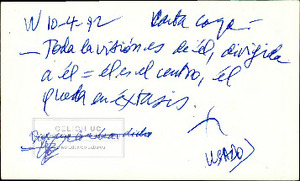 W 10-4-92 Carta Coga-
- Toda la visión es de él, dirigida
a él = él es el centro, él
queda en éxtasis.
USADO